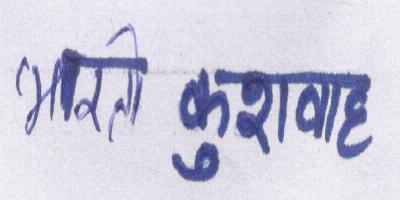 भारती कुशवाह